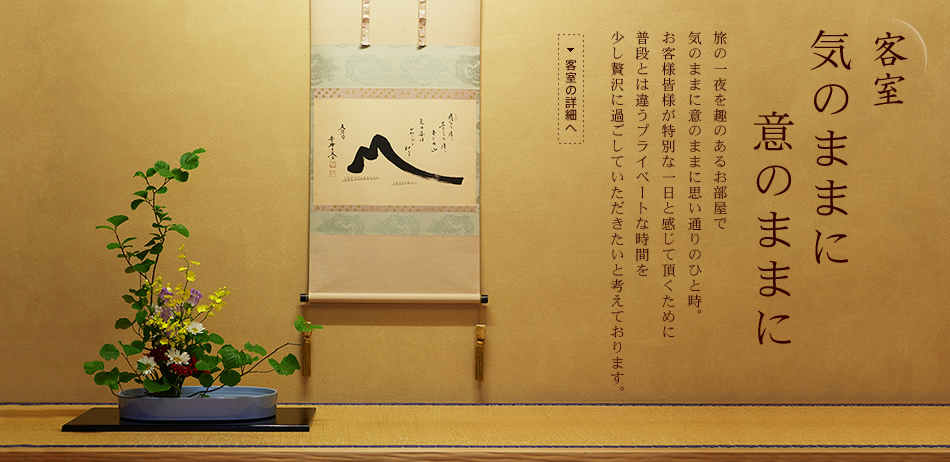 客室
気のままに
意のままに
旅の一夜を趣のあるお部屋で
気のままに意のままに思い通りのひと時。
お客様皆様が特別な一日と感じて頂くために
普段とは違うプライベートな時間を
少し贅沢に過ごしていただきたいと考えております。
▼客室の詳細へ